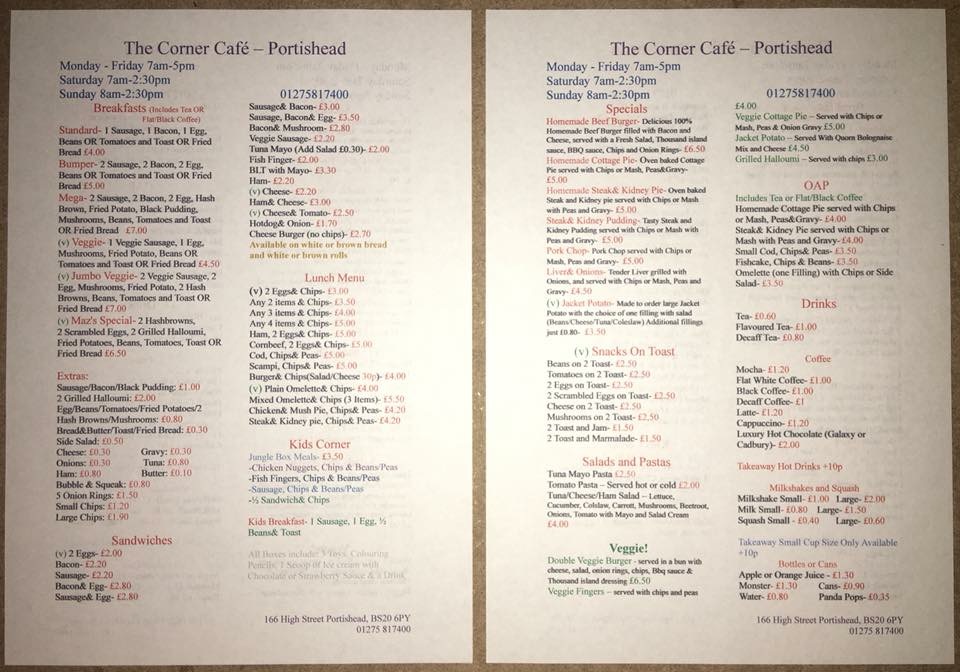 The Corner Café – Portishead
Monday - Friday 7am-5pm
Saturday 7am-2:30pm
Sunday 8am-2:30pm
Breakfasts (Includes Tea OR
Flat/Black Coffee)
Standard- 1 Sausage, 1 Bacon, 1 Egg,
Beans OR Tomatoes and Toast OR Fried
Bread £4.00
Bumper- 2 Sausage, 2 Bacon, 2 Egg,
Beans OR Tomatoes and Toast OR Fried
Bread £5.00
Mega- 2 Sausage, 2 Bacon, 2 Egg, Hash
Brown, Fried Potato, Black Pudding,
Mushrooms, Beans, Tomatoes and Toast
OR Fried Bread £7.00
(v) Veggie- 1 Veggie Sausage, 1 Egg,
Mushrooms, Fried Potato, Beans OR
Tomatoes and Toast OR Fried Bread £4.50
(v) Jumbo Veggie- 2 Veggie Sausage, 2
Egg, Mushrooms, Fried Potato, 2 Hash
Browns, Beans, Tomatoes and Toast OR
Fried Bread £7.00
(v) Maz's Special- 2 Hashbrowns,
2 Scrambled Eggs, 2 Grilled Halloumi,
Fried Potatoes, Beans, Tomatoes, Toast OR
Fried Bread £6.50
Extras:
Sausage/Bacon/Black Pudding: £1.00
2 Grilled Halloumi: £2.00
Egg/Beans/Tomatoes/Fried Potatoes/2
Hash Browns/Mushrooms: £0.80
Bread&Butter/Toast/Fried Bread: £0.30
Side Salad: £0.50
Cheese: £0.30 Gravy: £0.30
Onions: £0.30 Tuna: £0.80
Ham: £0.80 Butter: £0.10
Bubble & Squeak: £0.80
5 Onion Rings: £1.50
Small Chips: £1.20
Large Chips: £1.90
Sandwiches
(v) 2 Eggs- £2.00
Bacon- £2.20
Sausage- £2.20
Bacon& Egg- £2.80
Sausage& Egg- £2.80
01275817400
Sausage& Bacon- £3.00
Sausage, Bacon& Egg- £3.50
Bacon& Mushroom- £2.80
Veggie Sausage- £2.20
Tuna Mayo (Add Salad £0.30)- £2.00
Fish Finger- £2.00
BLT with Mayo- £3.30
Ham- £2.20
(v) Cheese- £2.20
Ham& Cheese- £3.00
(v) Cheese& Tomato- £2.50
Hotdog& Onion- £1.70
Cheese Burger (no chips)- £2.70
Available on white or brown bread
and white or brown rolls
Lunch Menu
(v) 2 Eggs& Chips- £3.00
Any 2 items & Chips- £3.50
Any 3 items & Chips- £4.00
Any 4 items & Chips- £5.00
Ham, 2 Eggs& Chips- £5.00
Cornbeef, 2 Eggs& Chips- £5.00
Cod, Chips& Peas- £5.00
Scampi, Chips& Peas- £5.00
Burger& Chips(Salad/Cheese 30p)- £4.00
(v) Plain Omelette& Chips- £4.00
Mixed Omelette& Chips (3 Items)- £5.50
Chicken& Mush Pie, Chips& Peas- £4.20
Steak& Kidney pie, Chips& Peas- £4.20
Kids Corner
Jungle Box Meals- £3.50
-Chicken Nuggets, Chips & Beans/Peas
-Fish Fingers, Chips & Beans/Peas
-Sausage, Chips & Beans/Peas
-½ Sandwich& Chips
Kids Breakfast- 1 Sausage, 1 Egg, ½
Beans& Toast
All Boxes include: 3 Toys, Colouring
Pencils, 1 Scoop of Ice cream with
Chocolate or Strawberry Sauce & a Drink
166 High Street Portishead, BS20 6PY
01275 817400
The Corner Café – Portishead
Monday - Friday 7am-5pm
Saturday 7am-2:30pm
Sunday 8am-2:30pm
Specials
Homemade Beef Burger- Delicious 100%
Homemade Beef Burger filled with Bacon and
Cheese, served with a Fresh Salad, Thousand island
sauce, BBQ sauce, Chips and Onion Rings- £6.50
Homemade Cottage Pie- Oven baked Cottage
Pie served with Chips or Mash, Peas&Gravy-
£5.00
Homemade Steak& Kidney Pie- Oven baked
Steak and Kidney pie served with Chips or Mash
with Peas and Gravy- £5.00
Steak& Kidney Pudding- Tasty Steak and
Kidney Pudding served with Chips or Mash with
Peas and Gravy- £5.00
Pork Chop- Pork Chop served with Chips or
Mash, Peas and Gravy- £5.00
Liver& Onions- Tender Liver grilled with
Onions, and served with Chips or Mash, Peas and
Gravy- £4.50
(v) Jacket Potato- Made to order large Jacket
Potato with the choice of one filling with salad
(Beans/Cheese/Tuna/Coleslaw) Additional fillings
just £0.80- £3.50
(v) Snacks On Toast
Beans on 2 Toast- £2.50
Tomatoes on 2 Toast- £2.50
2 Eggs on Toast- £2.50
2 Scrambled Eggs on Toast- £2.50
Cheese on 2 Toast- £2.50
Mushrooms on 2 Toast- £2.50
2 Toast and Jam- £1.50
2 Toast and Marmalade- £1.50
Salads and Pastas
Tuna Mayo Pasta £2.50
Tomato Pasta – Served hot or cold £2.00
Tuna/Cheese/Ham Salad – Lettuce,
Cucumber, Colslaw, Carrott, Mushrooms, Beetroot,
Onions, Tomato with Mayo and Salad Cream
£4.00
Veggie!
Double Veggie Burger - served in a bun with
cheese, salad, onion rings, chips, Bbq sauce &
Thousand island dressing £6.50
Veggie Fingers – served with chips and peas
01275817400
£4.00
Veggie Cottage Pie – Served with Chips or
Mash, Peas & Onion Gravy £5.00
Jacket Potato – Served With Quorn Bolognaise
Mix and Cheese £4.50
Grilled Halloumi – Served with chips £3.00
OAP
Includes Tea or Flat/Black Coffee
Homemade Cottage Pie served with Chips
or Mash, Peas&Gravy- £4.00
Steak& Kidney Pie Served with Chips or
Mash with Peas and Gravy- £4.00
Small Cod, Chips& Peas- £3.50
Fishcake, Chips & Beans- £3.50
Omelette (one Filling) with Chips or Side
Salad- £3.50
Drinks
Tea- £0.60
Flavoured Tea- £1.00
Decaff Tea- £0.80
Coffee
Mocha- £1.20
Flat White Coffee- £1.00
Black Coffee- £1.00
Decaff Coffee- £1
Latte- £1.20
Cappuccino- £1.20
Luxury Hot Chocolate (Galaxy or
Cadbury)- £2.00
Takeaway Hot Drinks +10p
Milkshakes and Squash
Milkshake Small- £1.00 Large- £2.00
Milk Small- £0.80 Large- £1.50
Squash Small - £0.40 Large- £0.60
Takeaway Small Cup Size Only Available
+10p
Bottles or Cans
Apple or Orange Juice - £1.30
Monster- £1.30 Cans- £0.90
Water- £0.80 Panda Pops- £0.35
166 High Street Portishead, BS20 6PY
01275 817400